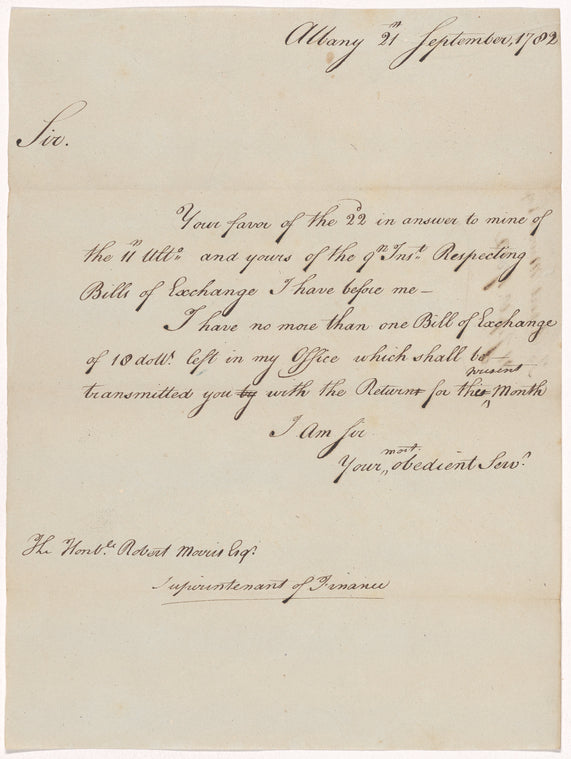 Albany 21 September, 1782
Sir.
Your favor of the 22d in answer to mine of
the 11th Ulto. and yours of the 9th Inst. Respecting
Bills of Exchange I have before me —
I have no more than one Bill of Exchange
of 18 dolls. left in my Office which shall be
transmitted you by with the Returns for the present Month
I Am Sir
Your most obedient Servt.
The Honble. Robert Morris Esqr.
Superintenant of Finance